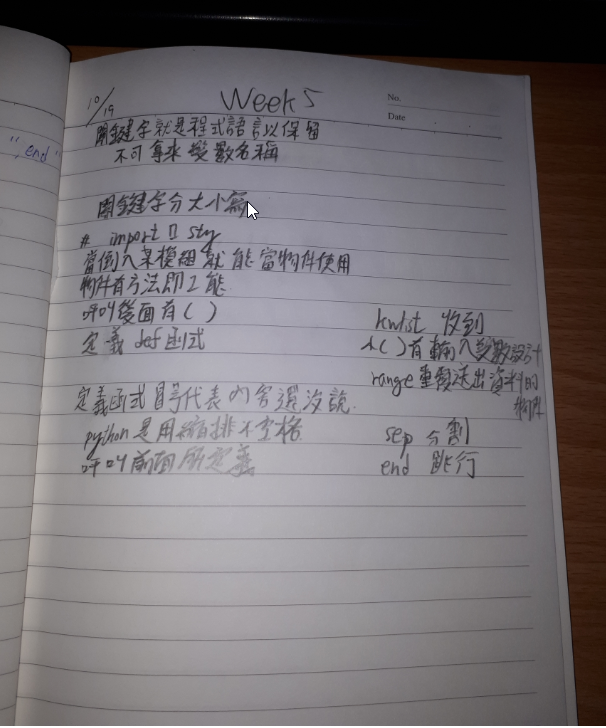 ", end"
10/19
Week 5
No.
Date
關鍵字就是程式語言以保留
不可拿來變數名稱
關鍵字分大小寫
# import
當倒入某模組就能當物件使用
物件有方法即工能
呼叫後面有()
定義 def 函式
定義函式冒號代表內容還沒說.
python是用縮排不空格
呼叫前面所定義
kwlist 收到
()有輸入變數設計
range 重複送出資料的
物件
sep 分割
end 跳行